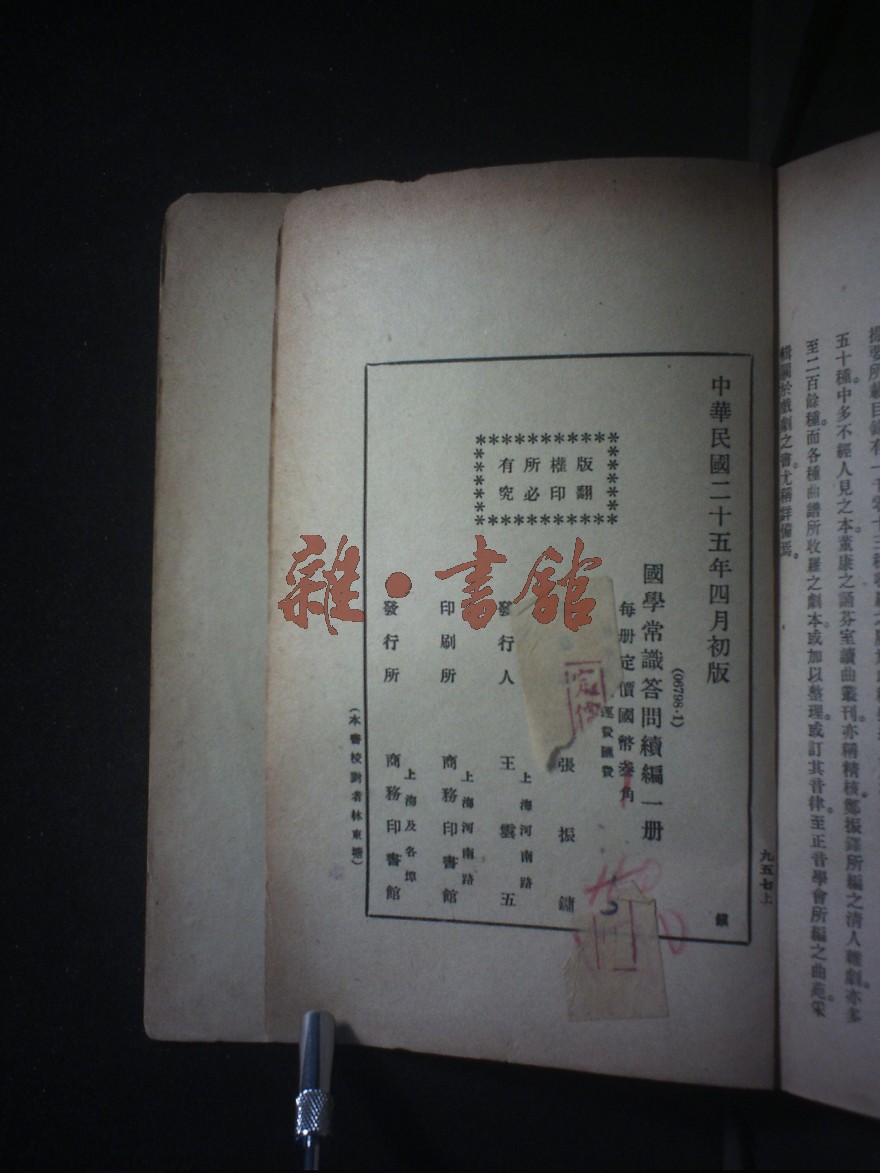 輯關於戲劇之書尤稱詳備焉。
至二百餘種。而各種曲譜所收羅之劇本或加以整理。或訂其音律。至正音學會所編之曲苑采
五十種。中多不經人見之本。董康之誦芬室讀曲叢刊。亦稱精核。鄭振鐸所編之清人雜劇亦多
中華民國二十五年四月初版
國學常識答問續編一册
(06798·1)
每册定價國幣叁角
運費匯費
版權所有
翻印必究
張振鏞
發行人
王雲五
上海河南路
印刷所
商務印書館
上海河南路
發行所
商務印書館
上海及各埠
(本書校對者林東塘)
九五七上
定價
雜·書館